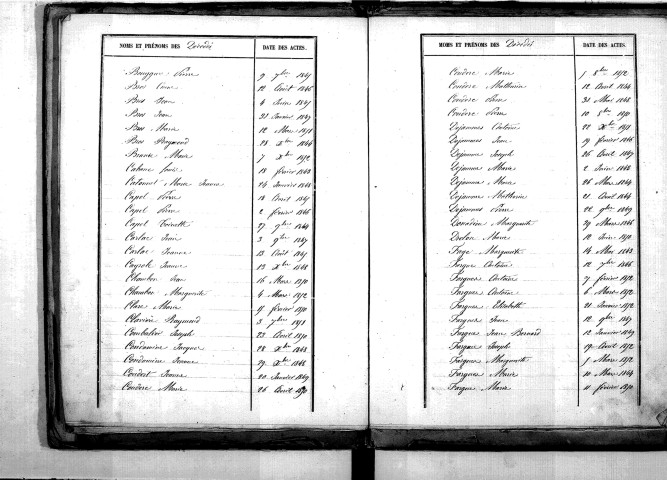 NOMS ET PRÉNOMS DES Décédés DATE DES ACTES.
Bouygue Pierre 9 7bre 1867
Bros 12 Août 1866
Bros Jean 4 Juin 1867
Bros Jean 21 Janvier 1869
Bros Marie 12 Mars 1871
Bros Raymond 28 Xbre 1866
Marie 7 Xbre 1872
Cabane Louis 18 février 1863
Calmet Marie Jeanne 24 Janvier 1864
Capel Pierre 18 Août 1867
Capel Pierre 2 février 1866
Capel Toinette 27 9bre 1869
Carlac Jean 3 9bre 1867
Carlac Jeanne 13 Août 1867
Cayrole Jeanne 13 Xbre 1868
Chambon Jean 16 Mars 1870
Chambon Marguerite 4 Mars 1872
Clare Marie 17 février 1870
Clavière Raymond 3 7bre 1871
Combalier Joseph 23 Avril 1870
Condamine Jacques 28 Xbre 1863
Condamine Jeanne 29 Xbre 1868
Couderc Jeanne 21 Janvier 1869
Couderc Marie 26 Avril 1870
NOMS ET PRÉNOMS DES Décédés DATE DES ACTES.
Couderc Marie 1 8bre 1872
Couderc Mathurin 12 Avril 1864
Couderc Pierre 31 Mai 1868
Couderc Pierre 10 1870
Dejammes Antoine 22 Xbre 1871
Dejammes Jean 19 février 1866
Dejammes Joseph 26 Avril 1867
Dejammes Marie 2 Juin 1868
Dejammes Marie 26 Mars 1864
Dejammes Mathurin 21 Avril 1864
Dejammes Pierre 22 9bre 1869
Donadieu Marguerite 29 Mars 1866
Drulon Marie 12 Juin 1870
Fage Marguerite 14 Mai 1863
Fargue Antoine 12 7bre 1866
Fargues Antoine 7 février 1872
Fargues Antoine 8 Mars 1872
Fargues Elisabeth 21 Janvier 1872
Fargues Jean 12 9bre 1867
Fargue Jean Bernard 12 Janvier 1869
Fargues Joseph 19 Avril 1872
Fargues Marguerite 1 Mars 1872
Fargues Marie 10 Mars 1864
Fargue Marie 11 février 1870